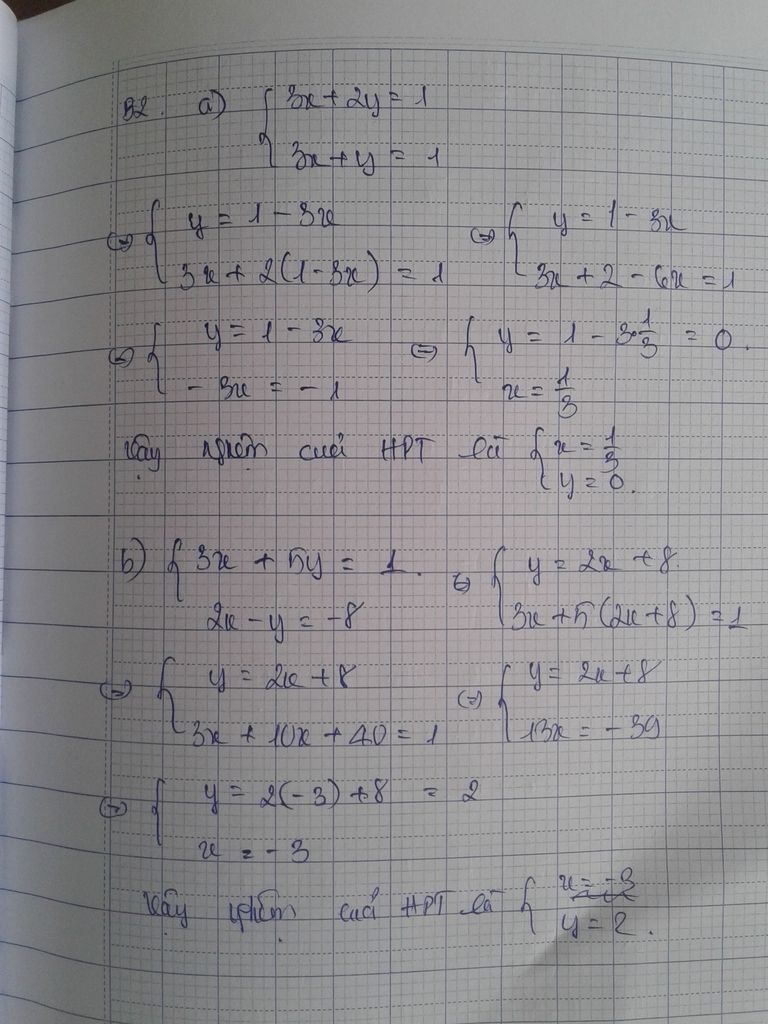 B2. a) { 3x + 2y = 1
3x + y = 1
⇔ { y = 1 - 3x ⇔ { y = 1 - 3x
3x + 2(1 - 3x) = 1 3x + 2 - 6x = 1
⇔ { y = 1 - 3x ⇔ { y = 1 - 3·1/3 = 0.
- 3x = - 1 x = 1/3
Vậy nghiệm của HPT là { x = 1/3
y = 0.
b) { 3x + 5y = 1. ⇔ { y = 2x + 8.
2x - y = -8 3x + 5(2x + 8) = 1
⇔ { y = 2x + 8 ⇔ { y = 2x + 8
3x + 10x + 40 = 1 13x = - 39
⇔ { y = 2(-3) + 8 = 2
x = - 3
Vậy nghiệm của HPT là { x = -3
y = 2.